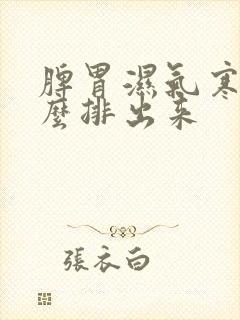 脾胃濕氣寒
麼排出来
張衣白